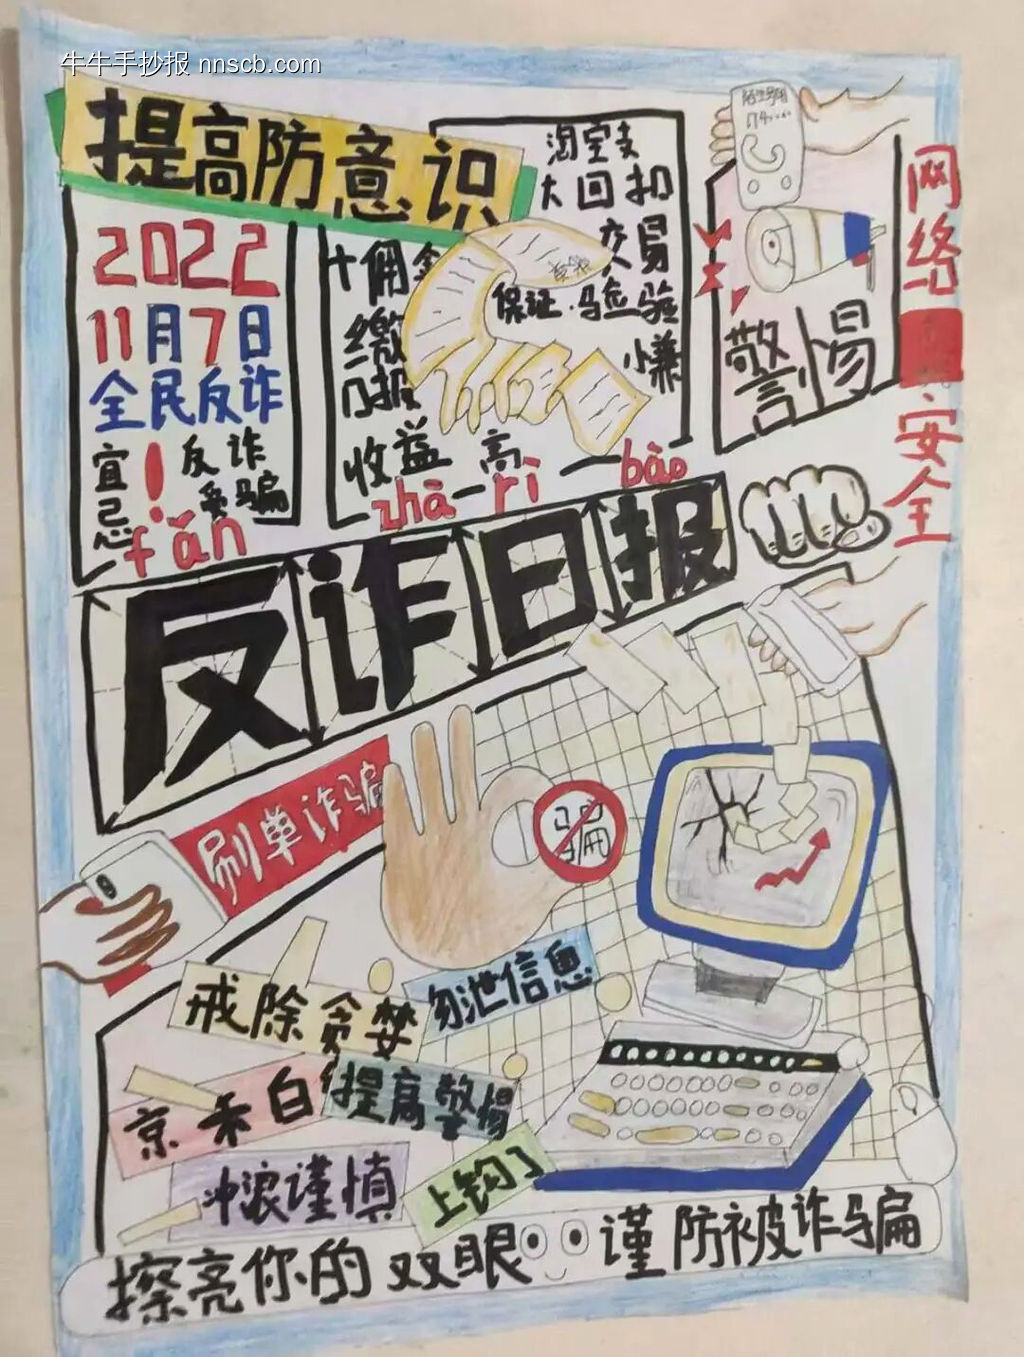 牛牛手抄报 nnscb.com
提高防意识
2022
11月7日
全民反诈
宜！反诈
忌 受骗
淘宝支
大回扣
交易
保证·验
小赚
十佣金
缴
门报
收益高
陌生号码
174
警惕
网络
安全
fǎn zhà rì bào
反诈日报
刷单诈骗
骗
戒除贪婪
勿泄信息
京东白
提高警惕
冲浪谨慎
上钩了
擦亮你的双眼 谨防被诈骗